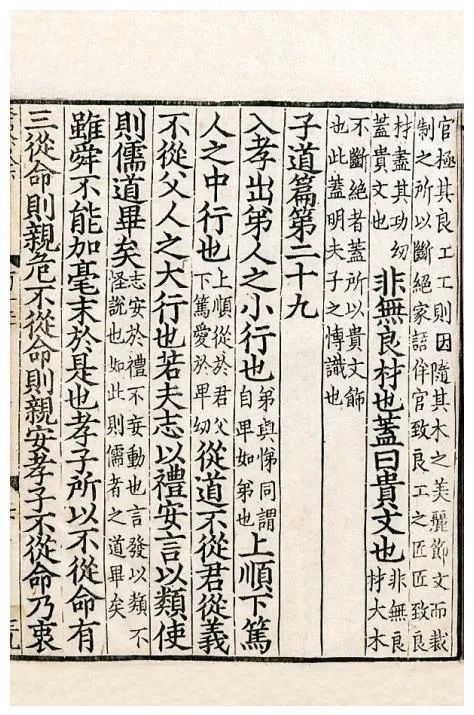 官極其良工工則因隨其木之美麗節文而裁
制之所以斷絕家語作官致良工之匠匠致良
材盡其功紉
蓋貴文也
非無良材也蓋曰貴文也
非無良
材大木
不斷絕者蓋所以貴文飾
也此蓋明夫子之博識也
子道篇第二十九
入孝出弟人之小行也
弟與悌同謂
自卑如弟也
上順下篤
人之中行也
上順從於君父
下篤愛於卑幼
從道不從君從義
不從父人之大行也若夫志以禮安言以類使
則儒道畢矣
志安於禮不妄動也言發以類不
怪說也如此則儒者之道畢矣
雖舜不能加毫末於是也孝子所以不從命有
三從命則親危不從命則親安孝子不從命乃衷